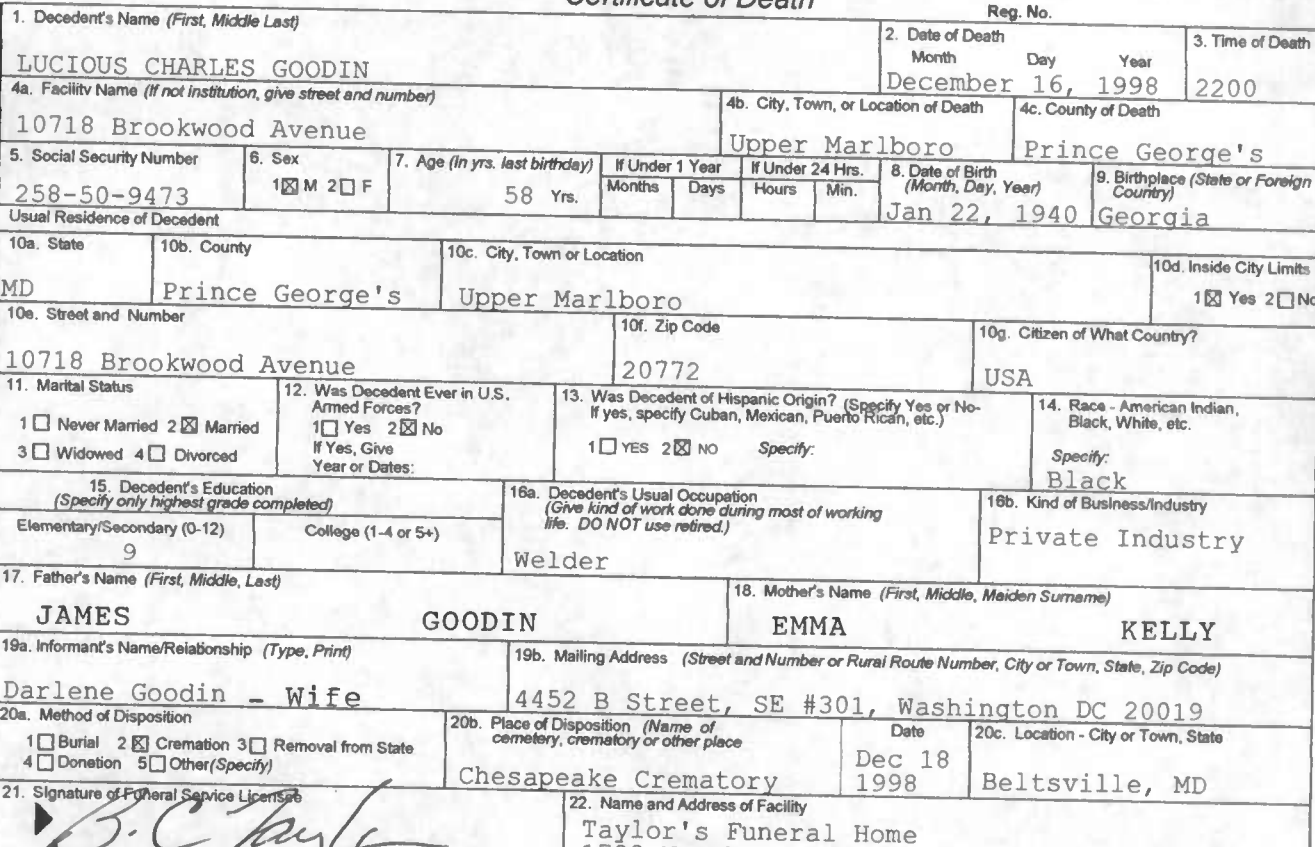 Certificate of Death
Reg. No.
1. Decedent's Name (First, Middle Last)
LUCIOUS CHARLES GOODIN
2. Date of Death
Month Day Year
December 16, 1998
3. Time of Death
2200
4a. Facility Name (If not institution, give street and number)
10718 Brookwood Avenue
4b. City, Town, or Location of Death
Upper Marlboro
4c. County of Death
Prince George's
5. Social Security Number
258-50-9473
6. Sex
1☒ M 2☐ F
7. Age (In yrs. last birthday)
58 Yrs.
If Under 1 Year
Months Days
If Under 24 Hrs.
Hours Min.
8. Date of Birth
(Month, Day, Year)
Jan 22, 1940
9. Birthplace (State or Foreign
Country)
Georgia
Usual Residence of Decedent
10a. State
MD
10b. County
Prince George's
10c. City, Town or Location
Upper Marlboro
10d. Inside City Limits
1☒ Yes 2☐ No
10e. Street and Number
10718 Brookwood Avenue
10f. Zip Code
20772
10g. Citizen of What Country?
USA
11. Marital Status
1☐ Never Married 2☒ Married
3☐ Widowed 4☐ Divorced
12. Was Decedent Ever in U.S.
Armed Forces?
1☐ Yes 2☒ No
If Yes, Give
Year or Dates:
13. Was Decedent of Hispanic Origin? (Specify Yes or No-
If yes, specify Cuban, Mexican, Puerto Rican, etc.)
1☐ YES 2☒ NO Specify:
14. Race - American Indian,
Black, White, etc.
Specify:
Black
15. Decedent's Education
(Specify only highest grade completed)
Elementary/Secondary (0-12)
9
College (1-4 or 5+)
16a. Decedent's Usual Occupation
(Give kind of work done during most of working
life. DO NOT use retired.)
Welder
16b. Kind of Business/Industry
Private Industry
17. Father's Name (First, Middle, Last)
JAMES GOODIN
18. Mother's Name (First, Middle, Maiden Surname)
EMMA KELLY
19a. Informant's Name/Relationship (Type, Print)
Darlene Goodin - Wife
19b. Mailing Address (Street and Number or Rural Route Number, City or Town, State, Zip Code)
4452 B Street, SE #301, Washington DC 20019
20a. Method of Disposition
1☐ Burial 2☒ Cremation 3☐ Removal from State
4☐ Donation 5☐ Other(Specify)
20b. Place of Disposition (Name of
cemetery, crematory or other place
Chesapeake Crematory
Date
Dec 18
1998
20c. Location - City or Town, State
Beltsville, MD
21. Signature of Funeral Service Licensee
B. C. Taylor
22. Name and Address of Facility
Taylor's Funeral Home